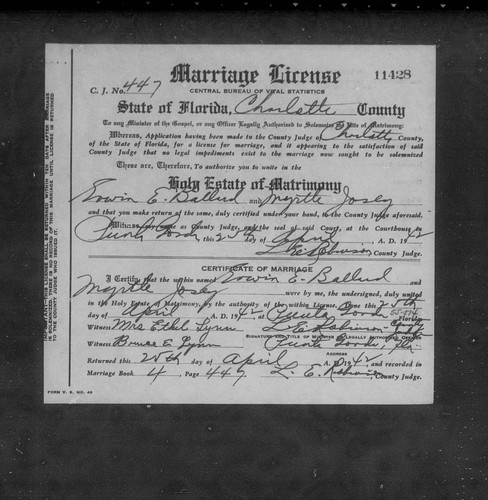 Marriage License
11428
C. J. No. 447
CENTRAL BUREAU OF VITAL STATISTICS
State of Florida, Charlotte County
To any Minister of the Gospel, or any Officer Legally Authorized to Solemnize Rite of Matrimony:
Whereas, Application having been made to the County Judge of Charlotte County,
of the State of Florida, for a license for marriage, and it appearing to the satisfaction of said
County Judge that no legal impediments exist to the marriage now sought to be solemnized
These are, Therefore, To authorize you to unite in the
Holy Estate of Matrimony
Erwin E. Ballard and Myrtle Josey
and that you make return of the same, duly certified under your hand, to the County Judge aforesaid.
Witness my name as County Judge, and the seal of said court, at the Courthouse in
Punta Gorda, this 25th day of April A. D. 1942
L. E. Robinson County Judge.
CERTIFICATE OF MARRIAGE
I Certify that the within named Erwin E. Ballard and
Myrtle Josey were by me, the undersigned, duly united
in the Holy Estate of Matrimony, by the authority of the within License. Done this 25th
day of April A. D. 1942, at Punta Gorda Florida
Witness Mrs Ethel Lynn L. E. Robinson
SIGNATURE AND TITLE OF MINISTER OR LEGALLY AUTHORIZED OFFICER
Witness Bruce E. Lynn Punta Gorda, Fla.
ADDRESS
Returned this 25th day of April A. D. 1942, and recorded in
Marriage Book 4, Page 447 L. E. Robinson County Judge.
FORM V. S. NO. 45